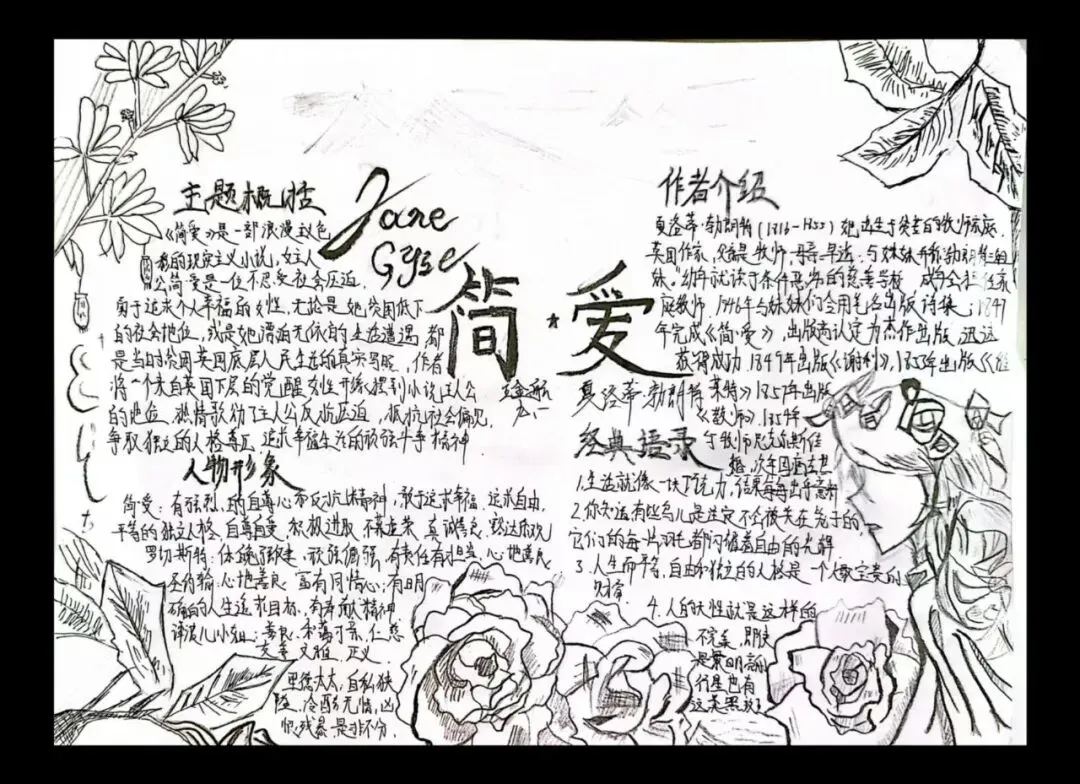 主题概括
《简爱》是一部浪漫主义色
彩的现实主义小说,女主人
公简爱是一位不忍受社会压迫
勇于追求个人幸福的女性,无论是她贫困低下
的社会地位,或是她漂泊无依的生活遭遇,都
是当时贫困英国底层人民生活的真实写照,作者
将一个来自英国下层的觉醒女性形象摆到小说主人公
的地位,热情歌动了主人公反抗压迫,抵抗社会偏见,
争取独立的人格尊严,追求幸福生活的顽强斗争精神
Jane
Gyse
简·爱
夏洛蒂·勃朗特
作者介绍
夏洛蒂·勃朗特(1816-1855)她出生于贫苦的牧师家庭,
英国作家,父亲是牧师,母亲早逝,与妹妹并称"勃朗特三姐
妹."幼年就读于条件恶劣的慈善学校,成年后担任家
庭教师,1846年与妹妹们合用笔名出版诗集;1847
年完成《简·爱》,出版商认定为杰作出版,迅速
获得成功,1849年出版《谢利》,1853年出版《维
莱特》1857年出版
《教师》1854年
与牧师尼克尔斯结
婚,次年因病去世
人物形象
简爱:有强烈的自尊心和反抗精神,敢于追求幸福,追求自由,
平等的独立人格,自尊自爱,积极进取,不慕虚荣,真诚善良,豁达
罗切斯特:体魄强健,顽强倔强,有责任有担当,心地善良
圣约翰:心地善良,富有同情心;有明
确的人生追求目标,有奉献精神
谭波儿小姐:善良,和蔼可亲,仁慈
文雅,正义
里德太太,自私狭
隘,冷酷无情,凶
狠残暴是非不分.
经典语录
1.生活就像一块巧克力,结果每每出乎意料
2.你知道有些鸟儿是注定不会被关在笼子的,
它们的每一片羽毛都闪耀着自由的光辉
3.人生而平等,自由和独立的人格是一个人最宝贵的
财富
4.人的天性就是这样的
不完美,即使
是最明亮的
行星也有
这类黑斑